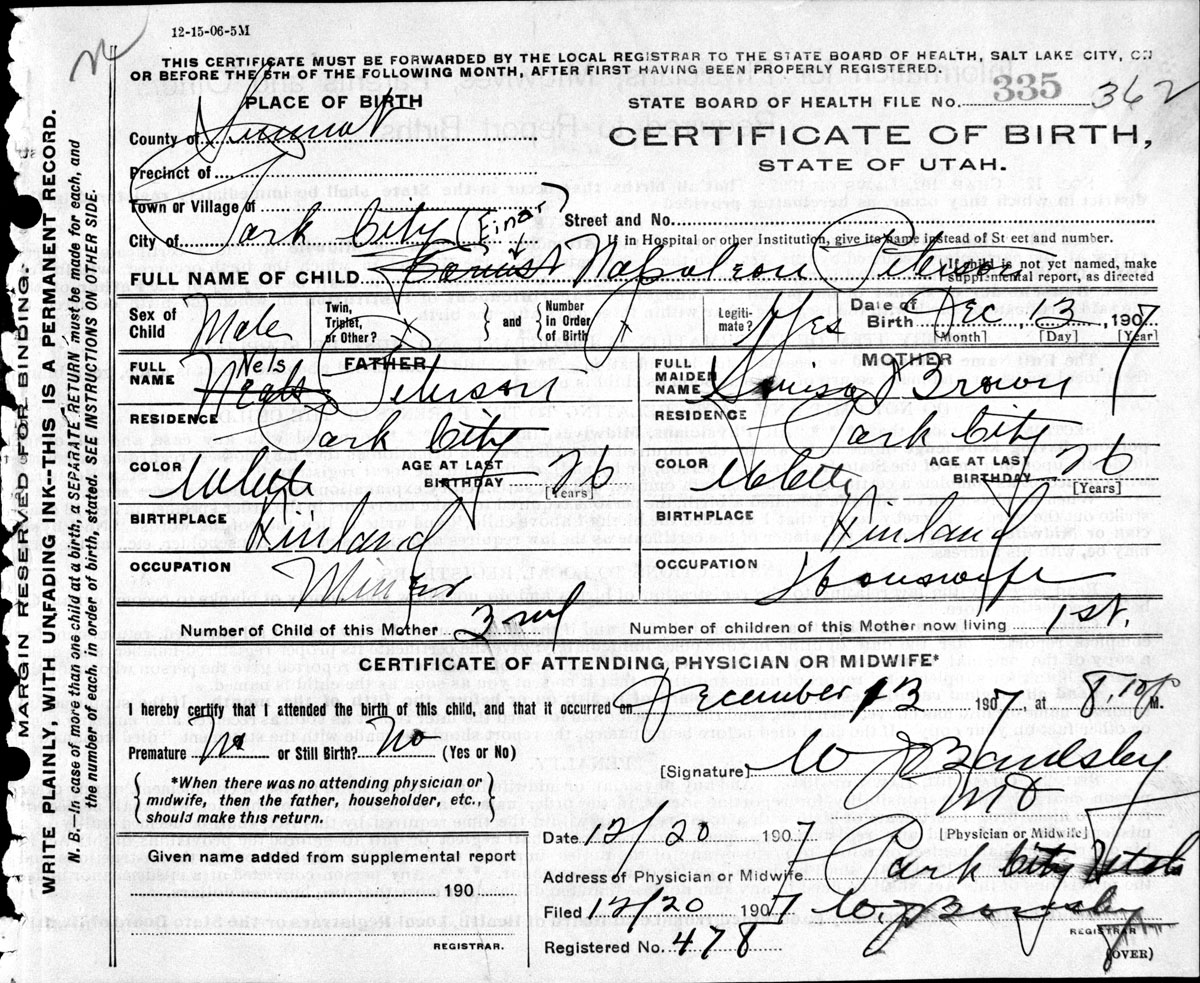 12-15-06-5M
THIS CERTIFICATE MUST BE FORWARDED BY THE LOCAL REGISTRAR TO THE STATE BOARD OF HEALTH, SALT LAKE CITY, ON
OR BEFORE THE 5TH OF THE FOLLOWING MONTH, AFTER FIRST HAVING BEEN PROPERLY REGISTERED.
MARGIN RESERVED FOR BINDING.
WRITE PLAINLY, WITH UNFADING INK--THIS IS A PERMANENT RECORD.
N. B.—In case of more than one child at a birth, a SEPARATE RETURN must be made for each, and
the number of each, in order of birth, stated. SEE INSTRUCTIONS ON OTHER SIDE.
PLACE OF BIRTH
County of Summit
Precinct of
Town or Village of
City of Park City (Einar)
STATE BOARD OF HEALTH FILE No. 335 362
CERTIFICATE OF BIRTH,
STATE OF UTAH.
Street and No.
If in Hospital or other Institution, give its name instead of St eet and number.
FULL NAME OF CHILD Napoleon Peterson
If child is not yet named, make
supplemental report, as directed
Sex of Child Male Twin, Triplet, or Other? and Number in Order of Birth Legitimate? Yes Date of Birth Dec, 13, 1907
[Month] [Day] [Year]
FATHER
FULL NAME Nels Peterson
RESIDENCE Park City
COLOR White AGE AT LAST BIRTHDAY 26 [Years]
BIRTHPLACE Finland
OCCUPATION Miner
MOTHER
FULL MAIDEN NAME Louisa Brown
RESIDENCE Park City
COLOR White AGE AT LAST BIRTHDAY 26 [Years]
BIRTHPLACE Finland
OCCUPATION Housewife
Number of Child of this Mother 2nd Number of children of this Mother now living 1st.
CERTIFICATE OF ATTENDING PHYSICIAN OR MIDWIFE*
I hereby certify that I attended the birth of this child, and that it occurred on December 13 1907, at 8,10 P M.
Premature No or Still Birth? No (Yes or No)
*When there was no attending physician or
midwife, then the father, householder, etc.,
should make this return.
[Signature] W J Bardsley
MD
Date 12/20 1907 [Physician or Midwife]
Given name added from supplemental report
190
REGISTRAR.
Address of Physician or Midwife Park City Utah
Filed 12/20 1907 W J Bardsley
REGISTRAR
Registered No. 478
(OVER)